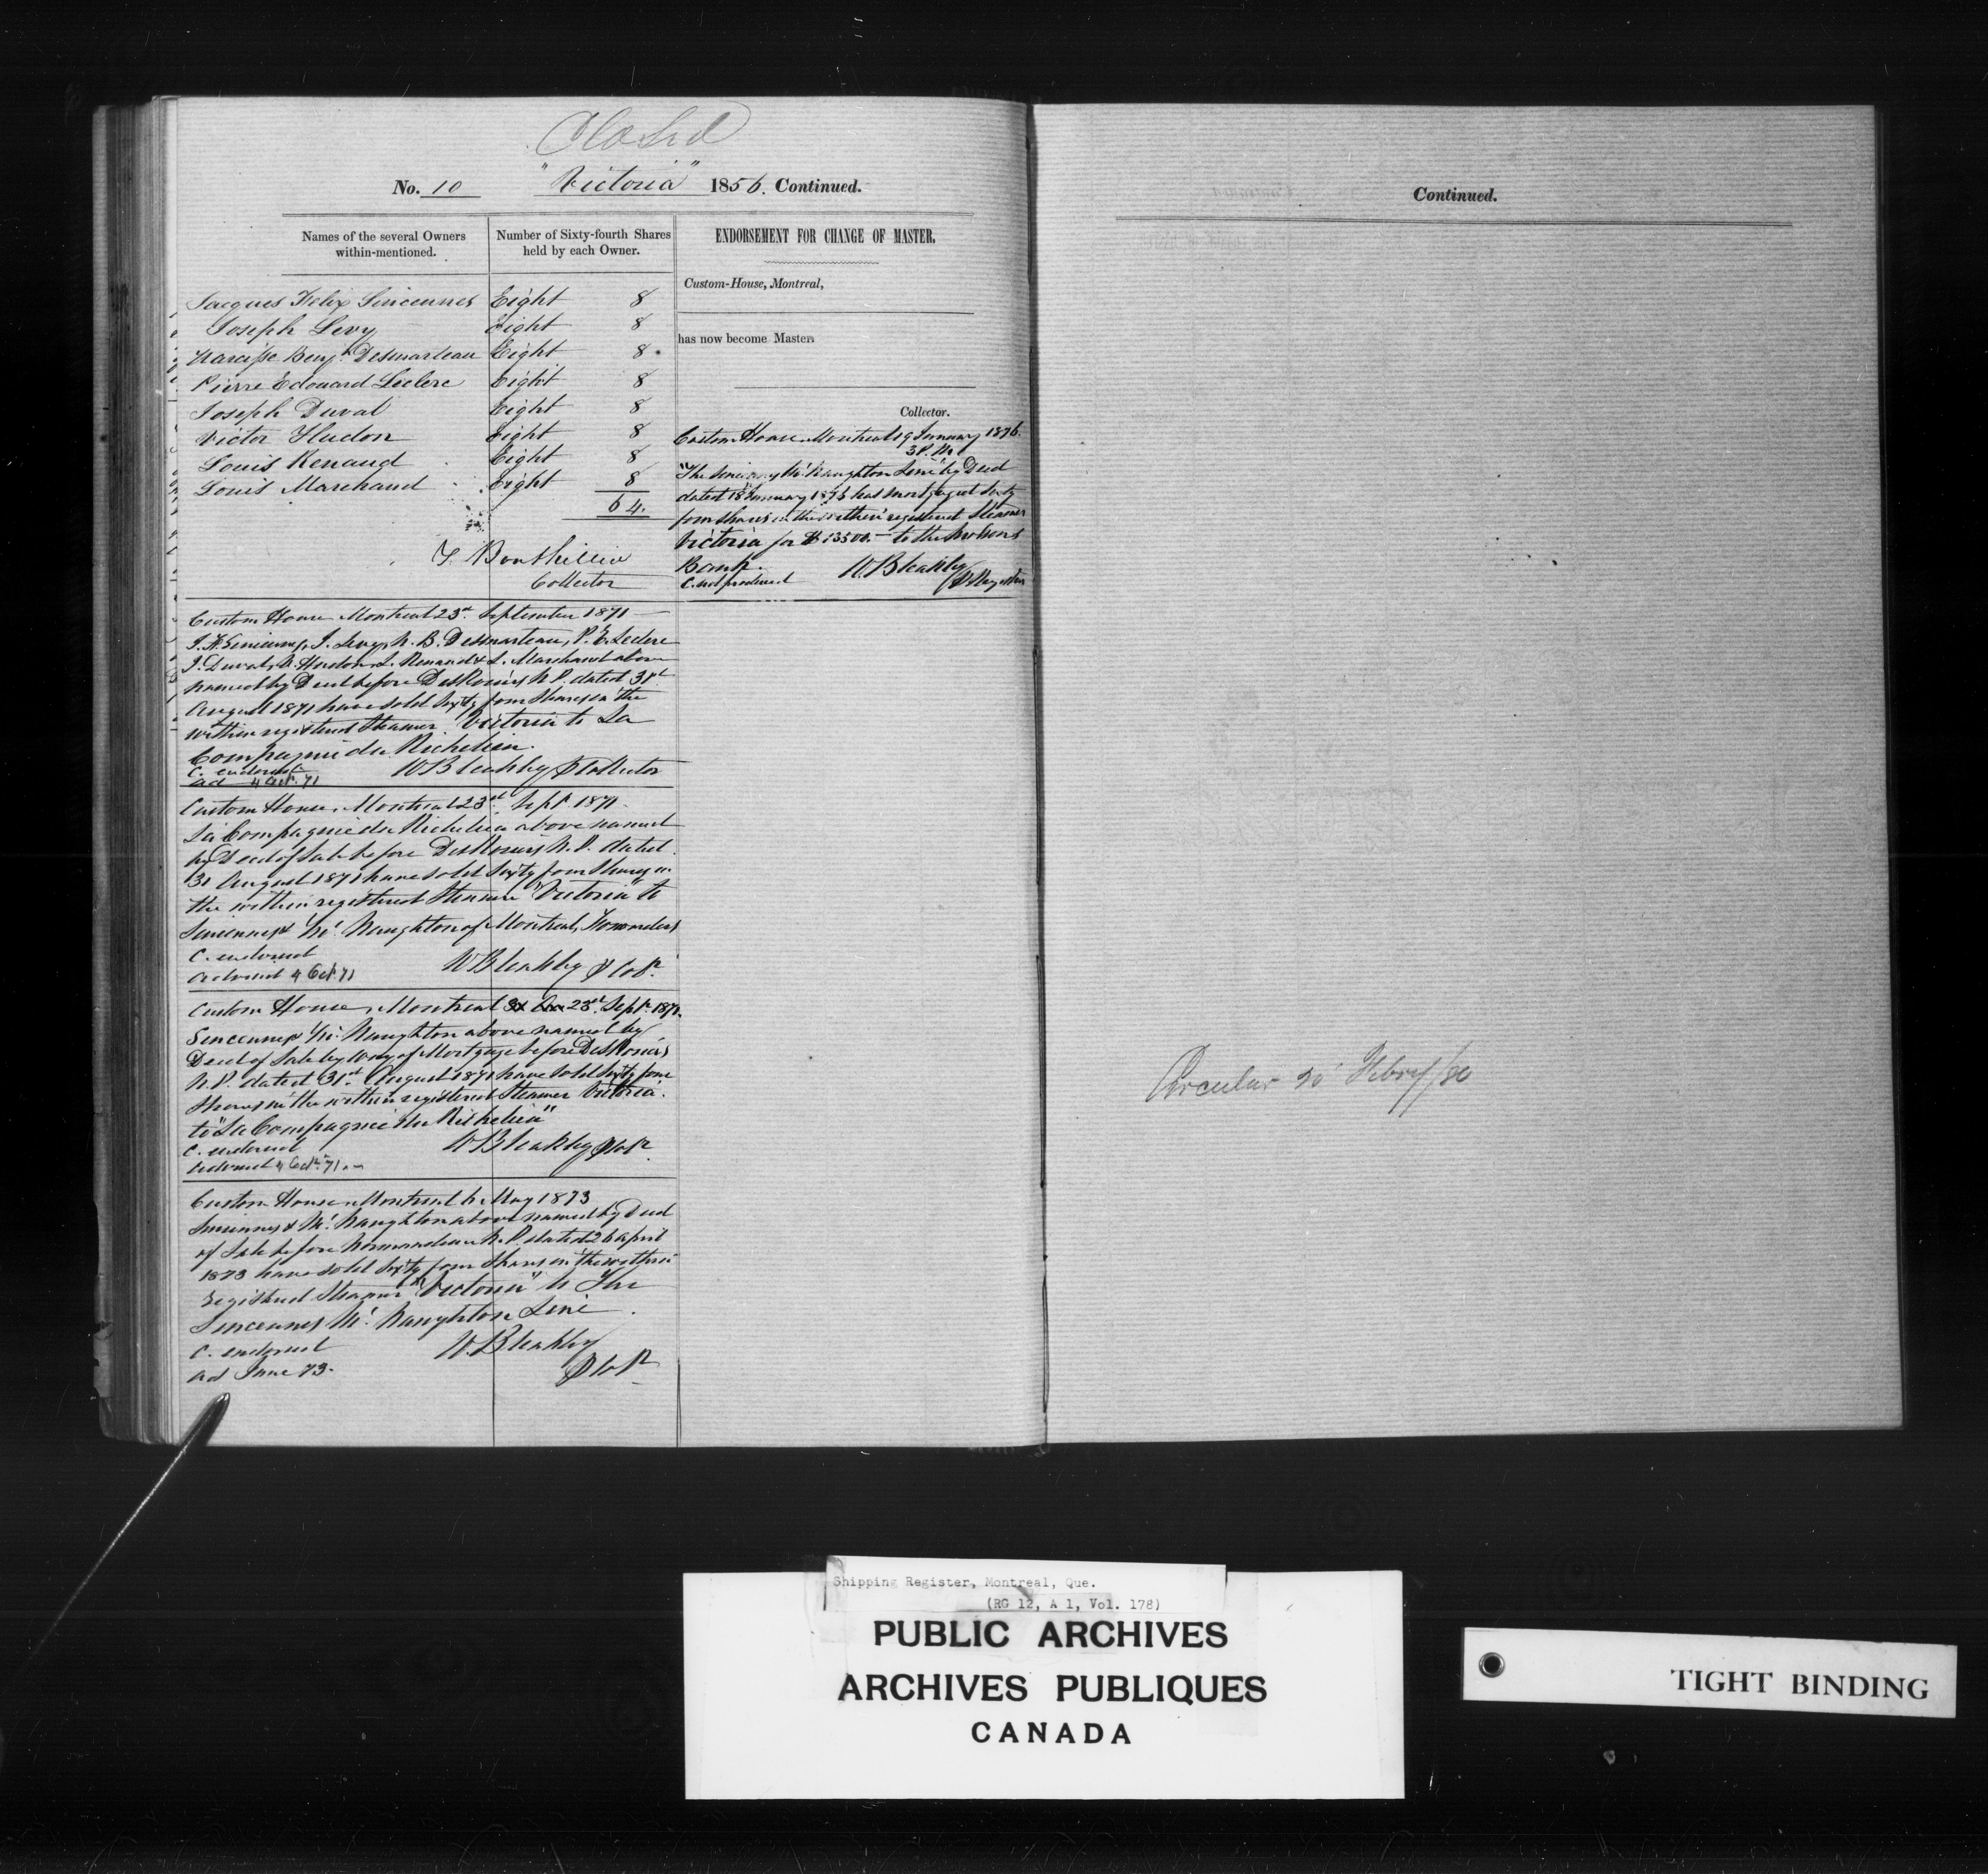 Closed
No. 10 "Victoria" 1856. Continued.
Names of the several Owners within-mentioned.
Number of Sixty-fourth Shares held by each Owner.
Jacques Felix Sincennes Eight 8
Joseph Levy Eight 8
Narcisse Benj.n Desmarteau Eight 8
Pierre Edouard Leclerc Eight 8
Joseph Duval Eight 8
Victor Hudon Eight 8
Louis Renaud Eight 8
Louis Marchand Eight 8
64.
Collector
Custom House Montreal 23rd September 1871
J. F. Sincennes, J. Levy, N. B. Desmarteau, P. E. Leclerc
J. Duval, V. Hudon, L. Renaud & L. Marchand above
named by Deed before DesRosiers N.P. dated 31st
August 1871 have sold Sixty four Shares in the
within registered Steamer Victoria to La
Compagnie du Richelieu.
C. endorsed
ad 4 Oct. 71
W Bleakley D Collector
Custom House, Montreal 23rd Sept 1871.
La Compagnie du Richelieu above named
by Deed of Sale before DesRosiers N.P. dated
31 August 1871 have sold Sixty four Shares in
the within registered Steamer "Victoria" to
Sincennes & McNaughton of Montreal, Forwarders
C. endorsed
advised 4 Oct. 71
W Bleakley D Colr.
Custom House, Montreal 23rd Sept. 1871.
Sincennes & McNaughton above named by
Deed of Sale by way of Mortgage before DesRosiers
N.P. dated 31st August 1871 have sold Sixty four
Shares in the within registered Steamer Victoria.
to "La Compagnie du Richelieu"
C. endorsed
advised 4 Oct. 71.
W Bleakley D Colr.
Custom House Montreal 6 May 1873
Sincennes & McNaughton above named by Deed
of Sale before Normandeau N.P. dated 26 April
1873 have sold Sixty four Shares in the within
registered Steamer "Victoria" to The
Sincennes McNaughton Line.
C. endorsed
ad June 73.
W. Bleakley
D Colr
ENDORSEMENT FOR CHANGE OF MASTER.
Custom-House, Montreal,
has now become Master.
Collector.
Custom House Montreal 19 January 1876.
3 P.M.
"The Sincennes McNaughton Line" by Deed
dated 18 January 1876 has mortgaged Sixty
four shares in the within registered Steamer
Victoria for $13500.– to the Molsons
Bank.
C. not produced
W. Bleakley
Continued.
Circular 20 Febry/80
Shipping Register, Montreal, Que.
(RG 12, A 1, Vol. 178)
PUBLIC ARCHIVES
ARCHIVES PUBLIQUES
CANADA
TIGHT BINDING